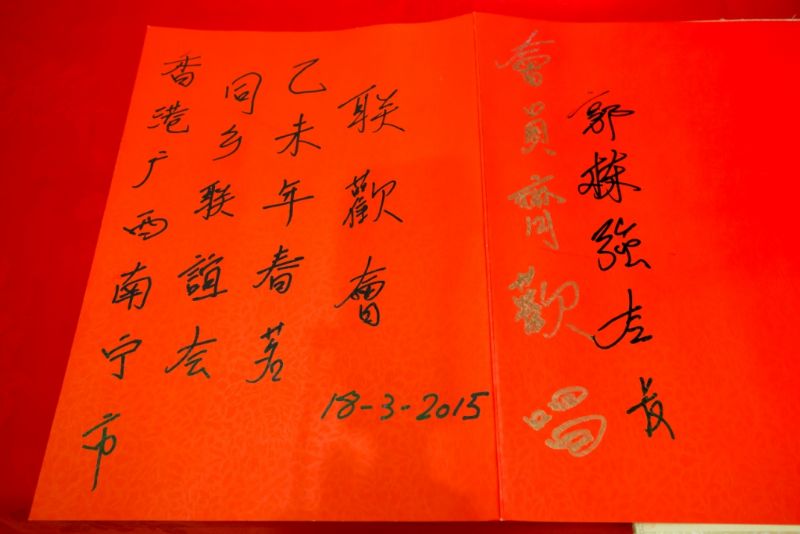 香港广西南宁市
同乡联誼会
乙未年春茗
联歡會
18-3-2015
會員齊歡唱
郭強